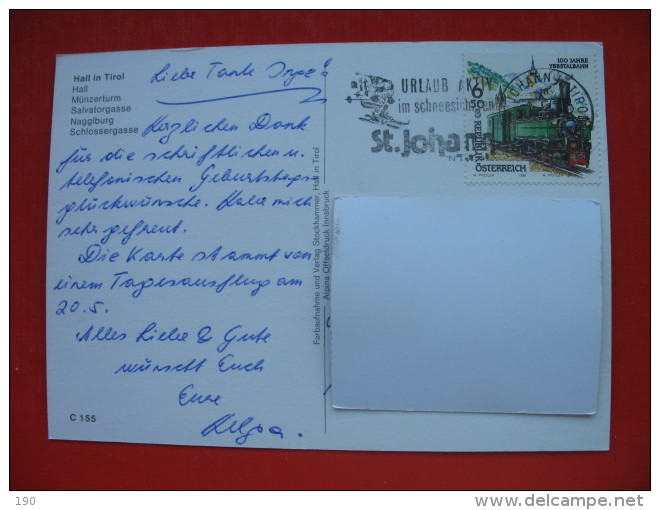 Hall in Tirol
Hall
Münzerturm
Salvatorgasse
Naggiburg
Schlossergasse
Liebe Tante Inge!
Herzlichen Dank
für die schriftlichen u.
telefonischen Geburtstags-
glückwünsche. Habe mich
sehr gefreut.
Die Karte stammt von
einem Tagesausflug am
20.5.
Alles Liebe & Gute
wünscht Euch
Eure
Helga.
C 155
Farbaufnahme und Verlag Stockhammer, Hall in Tirol
Alpina Offsetdruck Innsbruck
URLAUB AKTIV
im schneesichen
St. Johann
100 JAHRE
YBBSTALBAHN
6 50
REPUBLIK
ÖSTERREICH
190
delcampe.net